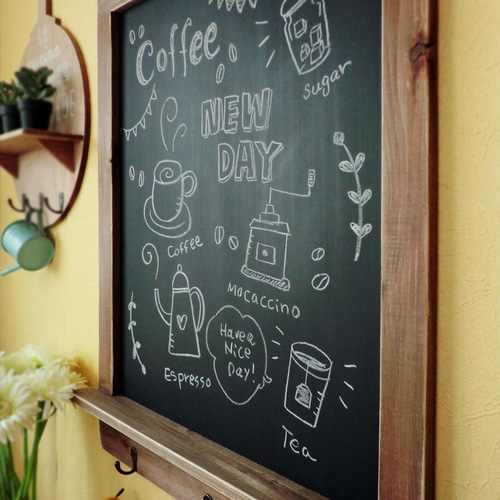 Coffee
sugar
NEW
DAY
Coffee
Mocaccino
Have a
Nice
Day!
Espresso
Tea